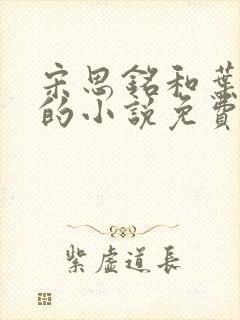 宋思銘和葉
的小說免費
紫虛道長